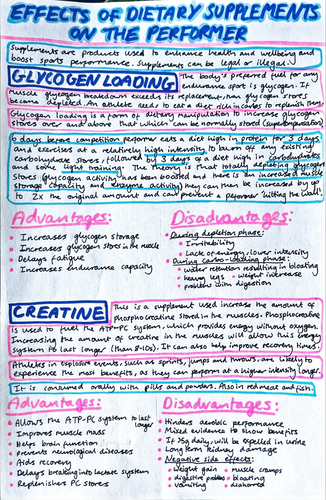 EFFECTS OF DIETARY SUPPLEMENTS
ON THE PERFORMER
Supplements are products used to enhance health and wellbeing and
boost sports performance. Supplements can be legal or illegal.
GLYCOGEN LOADING
The body's preferred fuel for any
endurance sport is glycogen. If
muscle glycogen breakdown exceeds its replacement, then glycogen stores
become depleted. An athlete needs to eat a diet rich in carbs to replenish them.
Glycogen loading is a form of dietary manipulation to increase glycogen
stores over and above that which can be normally stored (supercompensation)
6 days before competition performer eats a diet high in protein for 3 days
and exercises at a relatively high intensity to burn off any existing
carbohydrate stores, followed by 3 days of a diet high in carbohydrates
and some light training. The theory is that totally depleting glycogen
stores (glycogen activity has been boosted and there is an increased muscle
storage capacity and enzyme activity) they can then be increased by up
to 2x the original amount and can prevent a performer 'hitting the wall'.
Advantages:
Increases glycogen storage
Increases glycogen stores in the muscle
Delays fatigue
Increases endurance capacity
Disadvantages:
During depletion phase:
Irritability
Lack of energy, lower intensity
During carbo-loading phase:
water retention resulting in bloating
heavy legs • weight increase
problems with digestion
CREATINE
This is a supplement used increase the amount of
phosphocreatine stored in the muscles. Phosphocreatine
is used to fuel the ATP-PC system, which provides energy without oxygen.
Increasing the amount of creatine in the muscles will allow this energy
system to last longer (than 8-10s). It can also help improve recovery times.
Athletes in explosive events, such as sprints, jumps and throws, are likely to
experience the most benefits, as they can perform at a higher intensity longer.
It is consumed orally with pills and powders. Also in red meat and fish.
Advantages:
Allows the ATP-PC system to last longer
Improves muscle mass
Helps brain function
prevents neurological diseases
Aids recovery
Delays breaking into lactate system
Replenishes PC stores
Disadvantages:
Hinders aerobic performance
Mixed evidence to show benefits
If 25g daily, will be expelled in urine
Long term kidney damage
Negative side effects:
weight gain • muscle cramps
digestive problems • bloating
vomiting • diahorred